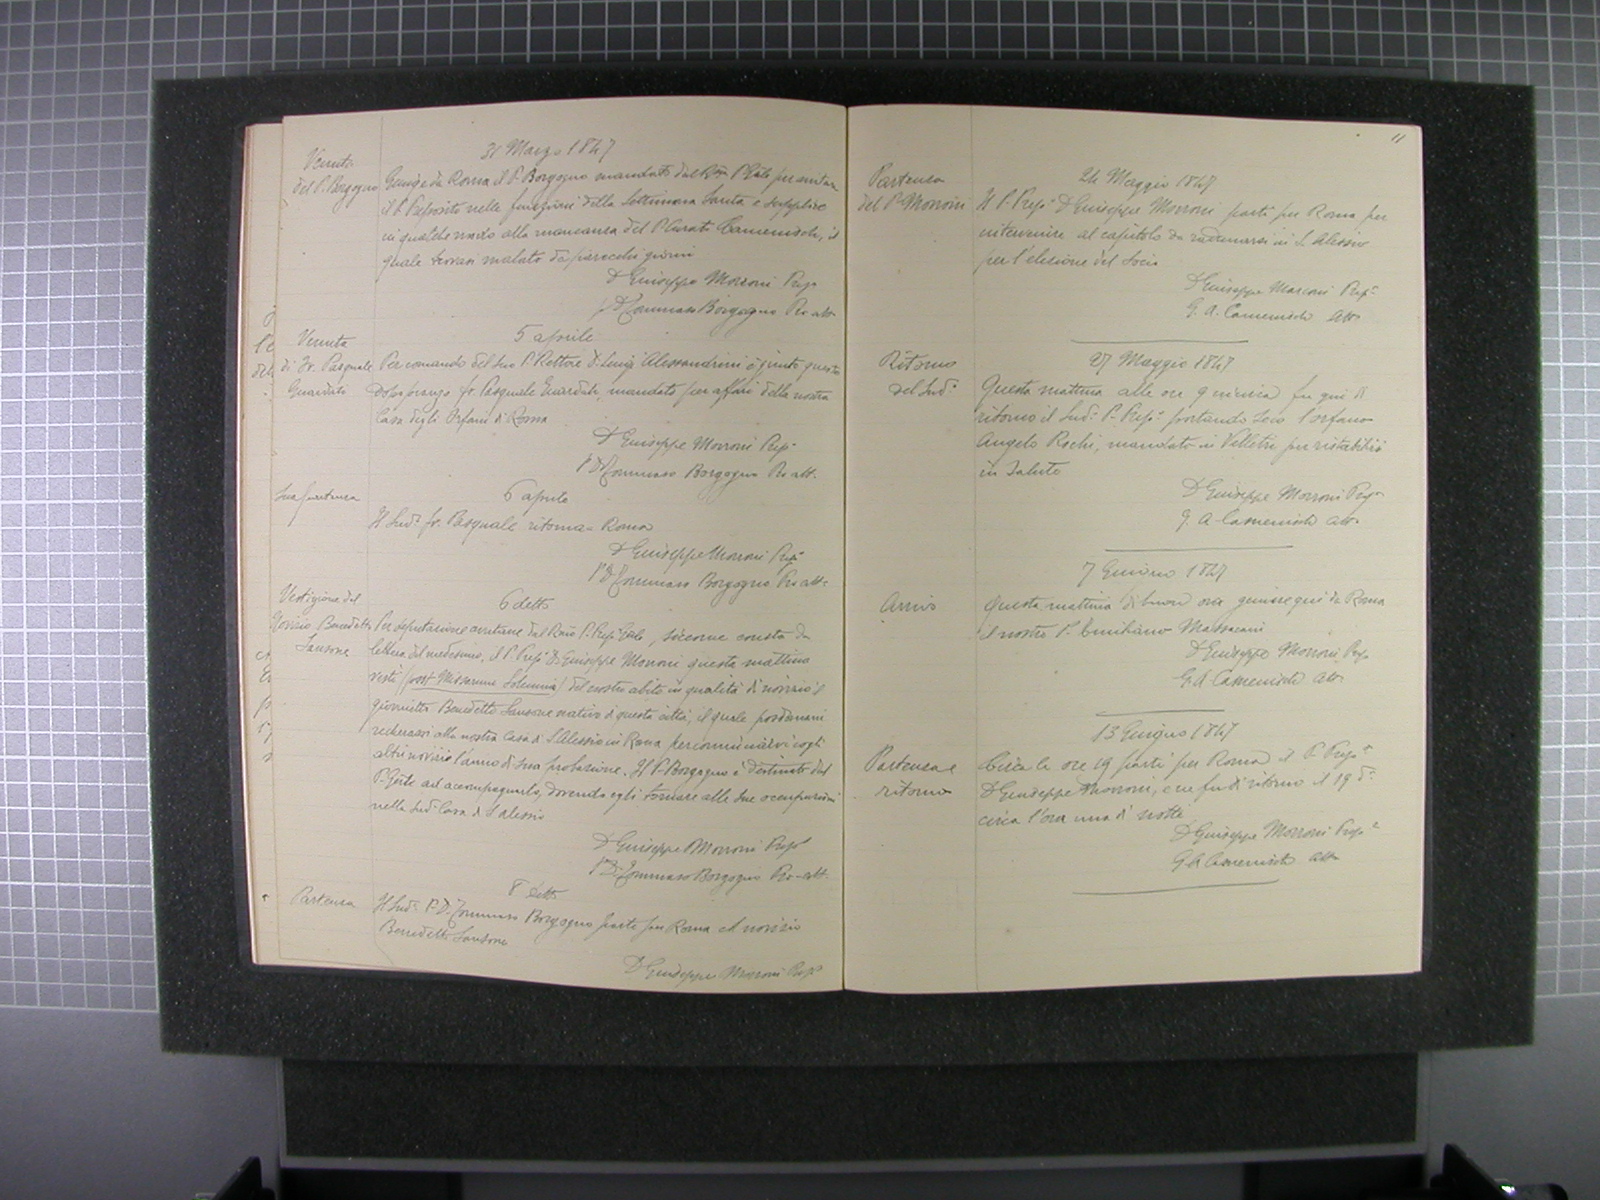 31 Marzo 1847
Venuta
del P. Borgogno
Giunse da Roma il P. Borgogno mandato dal Rmo P. Gnle per aiutare
il P. Preposito nelle funzioni della Settimana Santa e supplire
in qualche modo alla mancanza del P. Curato Camenisch, il
quale trovasi malato da parecchi giorni
D Giuseppe Morroni Prepo
P D Tommaso Borgogno Pro att.
5 aprile
Venuta
di Fr. Pasquale
Guardati
Per comando del suo P. Rettore D. Luigi Alessandrini è giunto questo
dopo pranzo fr. Pasquale Guardati, mandato per affari della nostra
Casa degli Orfani di Roma
D Giuseppe Morroni Prepo
P D Tommaso Borgogno Pro att.
6 aprile
Sua partenza
Il Sudo fr. Pasquale ritorna a Roma
D Giuseppe Morroni Prepo
P D Tommaso Borgogno Pro att.
6 detto
Vestizione del
Novizio Benedetto
Sansone
Per deputazione avutane dal Rmo P. Prepo Gnle, siccome consta da
lettera del medesimo, il P. Prepo D Giuseppe Morroni questa mattina
vestì (post Missarum Solemnia) del nostro abito in qualità di novizio il
giovinetto Benedetto Sansone nativo di questa città, il quale posdomani
recherassi alla nostra Casa di S. Alessio in Roma per cominciarvi cogli
altri novizi l'anno di sua probazione. Il P. Borgogno è destinato dal
P. Gnle ad accompagnarlo, dovendo egli tornare alle sue occupazioni
nella Suda Casa di S. Alessio
D Giuseppe Morroni Prepo
P D. Tommaso Borgogno Pro-att.
8 detto
Partenza
Il Sudo P. D. Tommaso Borgogno parte per Roma col novizio
Benedetto Sansone
D Giuseppe Morroni Prepo
11
24 Maggio 1847
Partenza
del P. Morroni
Il P. Prepo D Giuseppe Morroni partì per Roma per
intervenire al capitolo da radunarsi in S. Alessio
per l'elezione del Socio
D Giuseppe Morroni Prepo
G. A. Camenisch Atto
27 Maggio 1847
Ritorno
del Sudo
Questa mattina alle ore 9 incirca fu qui di
ritorno il Sudo P. Prepo portando seco l'orfano
Angelo Rochi, mandato in Velletri per ristabilirsi
in Salute
D Giuseppe Morroni Prepo
G. A. Camenisch atto
7 Giugno 1847
Arrivo
Questa mattina di buon ora giunse qui da Roma
il nostro P. Emiliano
D Giuseppe Morroni Prepo
G. A. Camenisch atto
13 Giugno 1847
Partenza e
ritorno
Circa le ore 19 partì per Roma il P. Prepo
D Giuseppe Morroni, e ne fu di ritorno il 19 do
circa l'ora una di notte
D Giuseppe Morroni Prepo
G A Camenisch atto